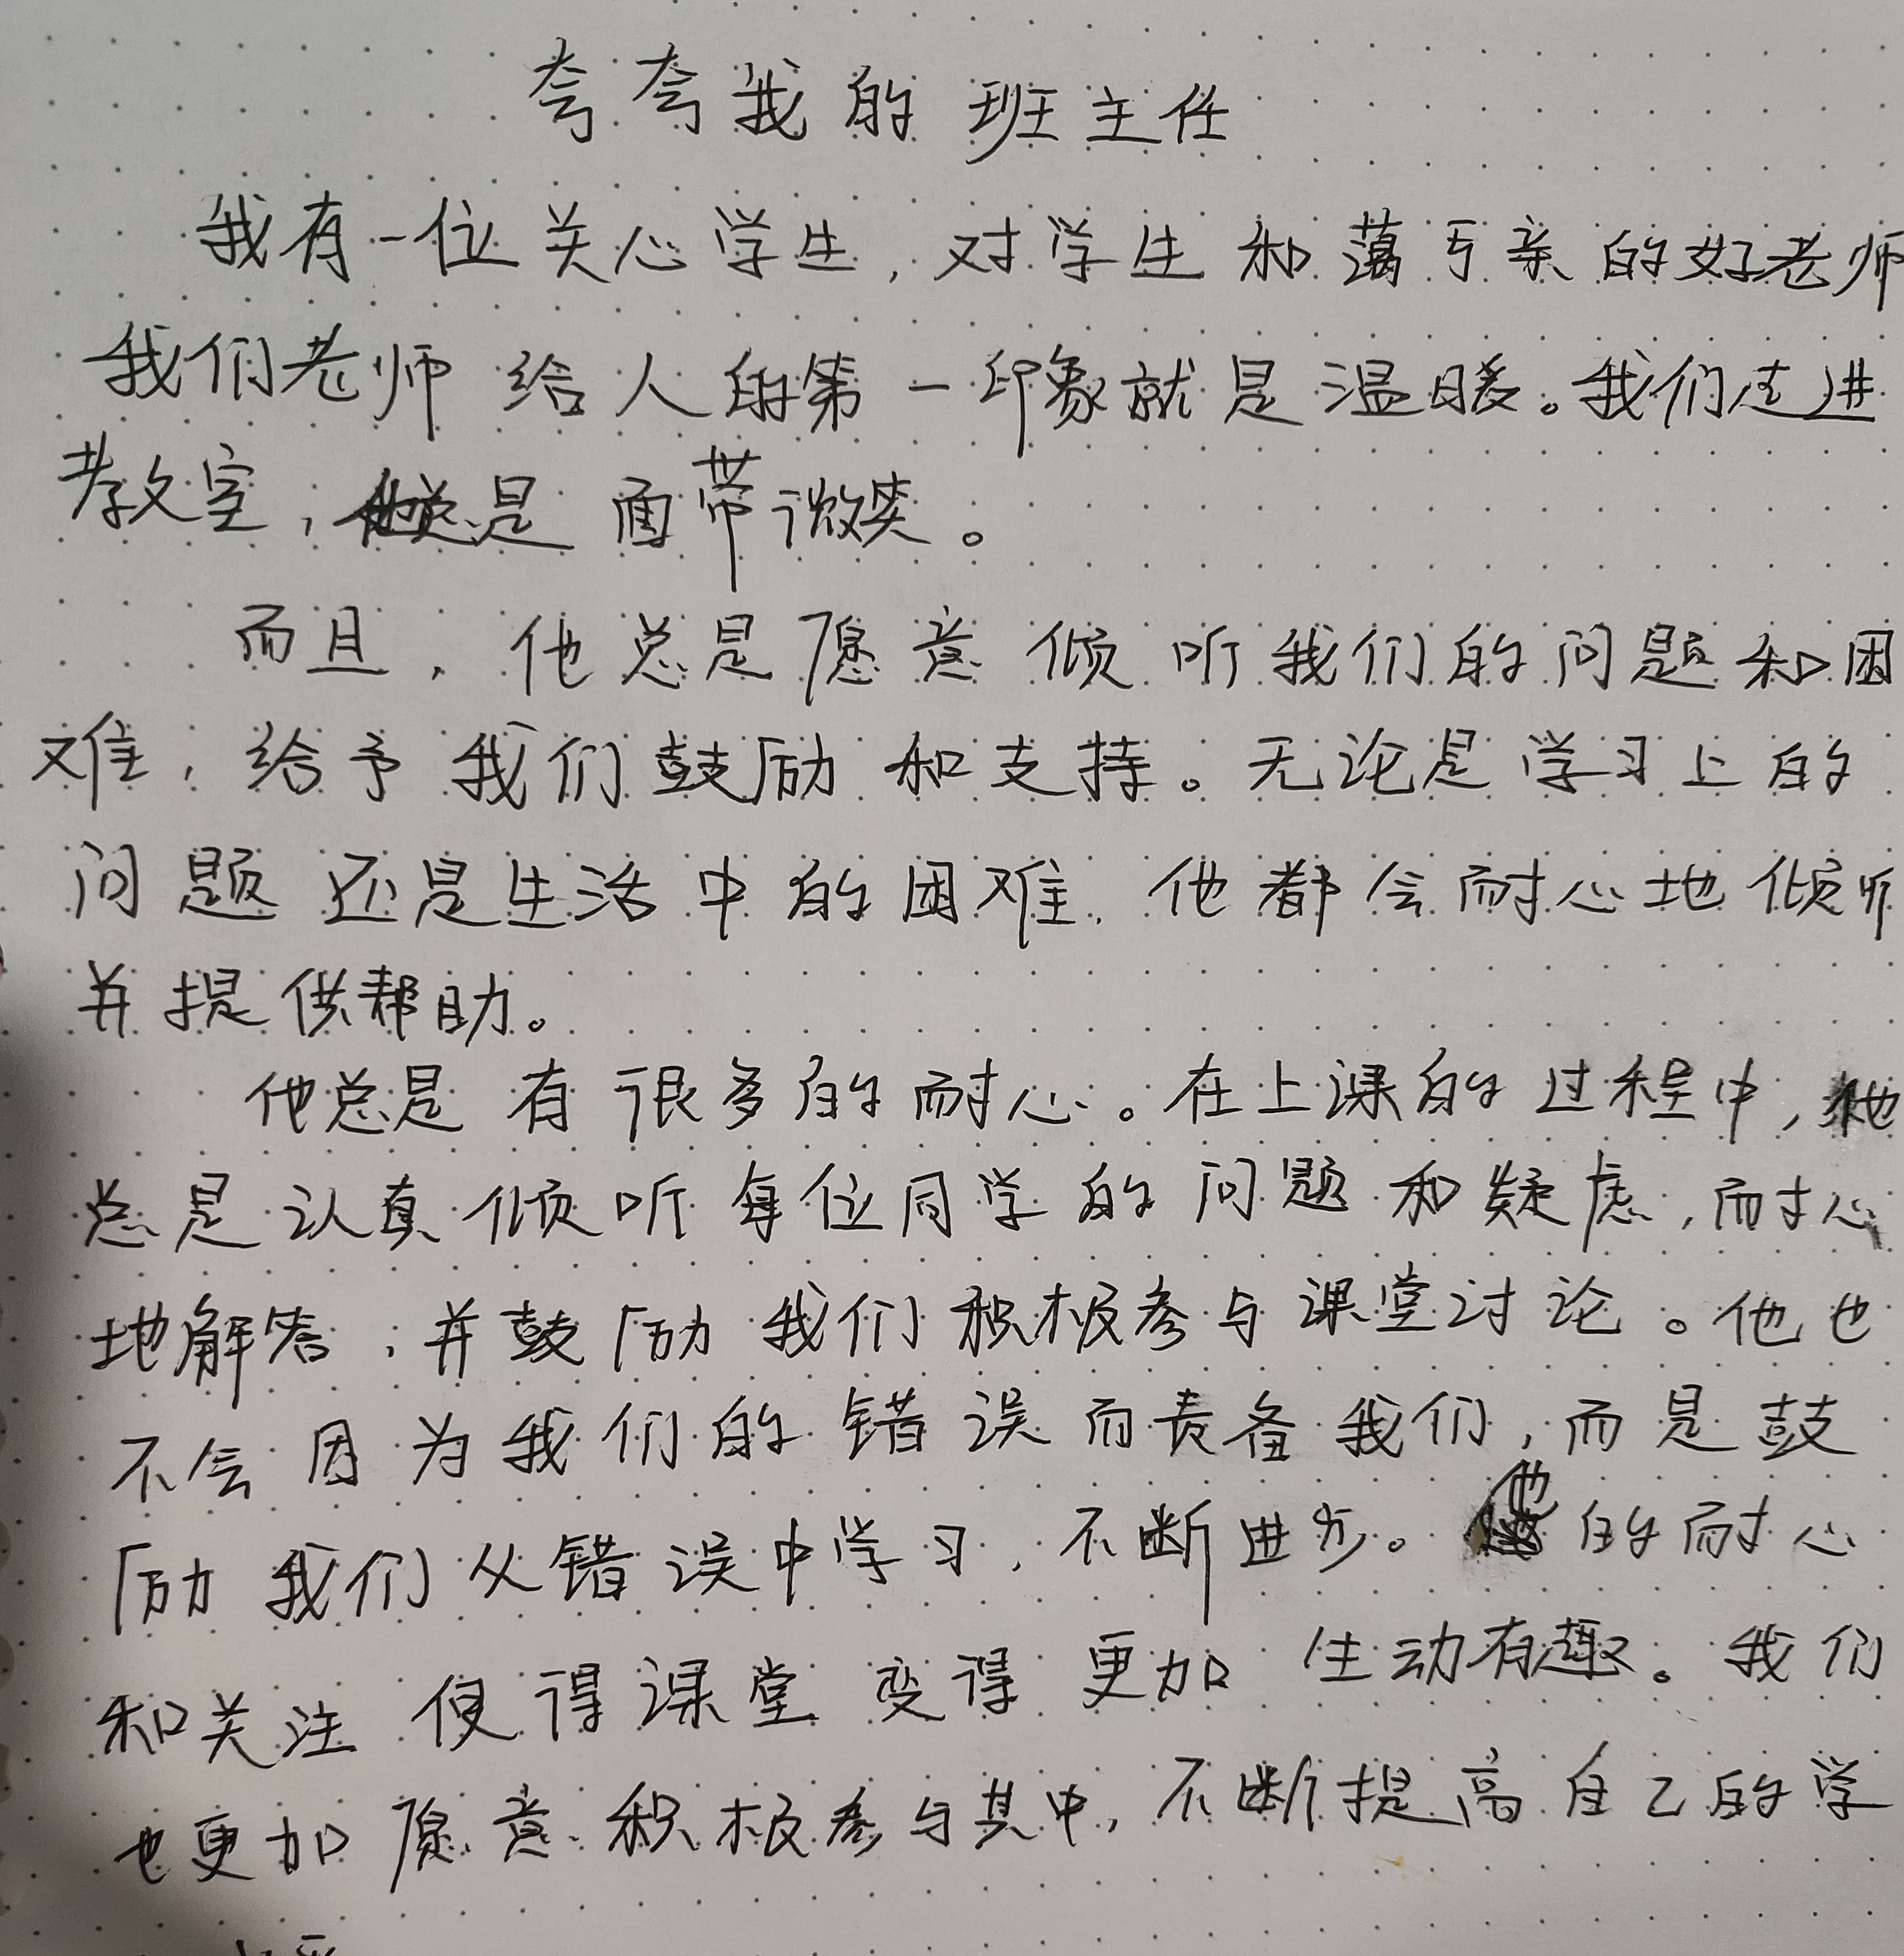 夸夸我的班主任
我有一位关心学生,对学生和蔼亏亲的好老师
我们老师给人的第一印象就是温暖。我们走进
教室,他总是面带微笑。
而且,他总是愿意倾听我们的问题和困
难,给予我们鼓励和支持。无论是学习上的
问题还是生活中的困难,他都会耐心地倾听
并提供帮助。
他总是有很多的耐心。在上课的过程中,他
总是认真倾听每位同学的问题和疑虑,耐心
地解答,并鼓励我们积极参与课堂讨论。他也
不会因为我们的错误而责备我们,而是鼓
励我们从错误中学习,不断进步。他的耐心
和关注使得课堂变得更加生动有趣。我们
也更加愿意积极参与其中,不断提高自己的学